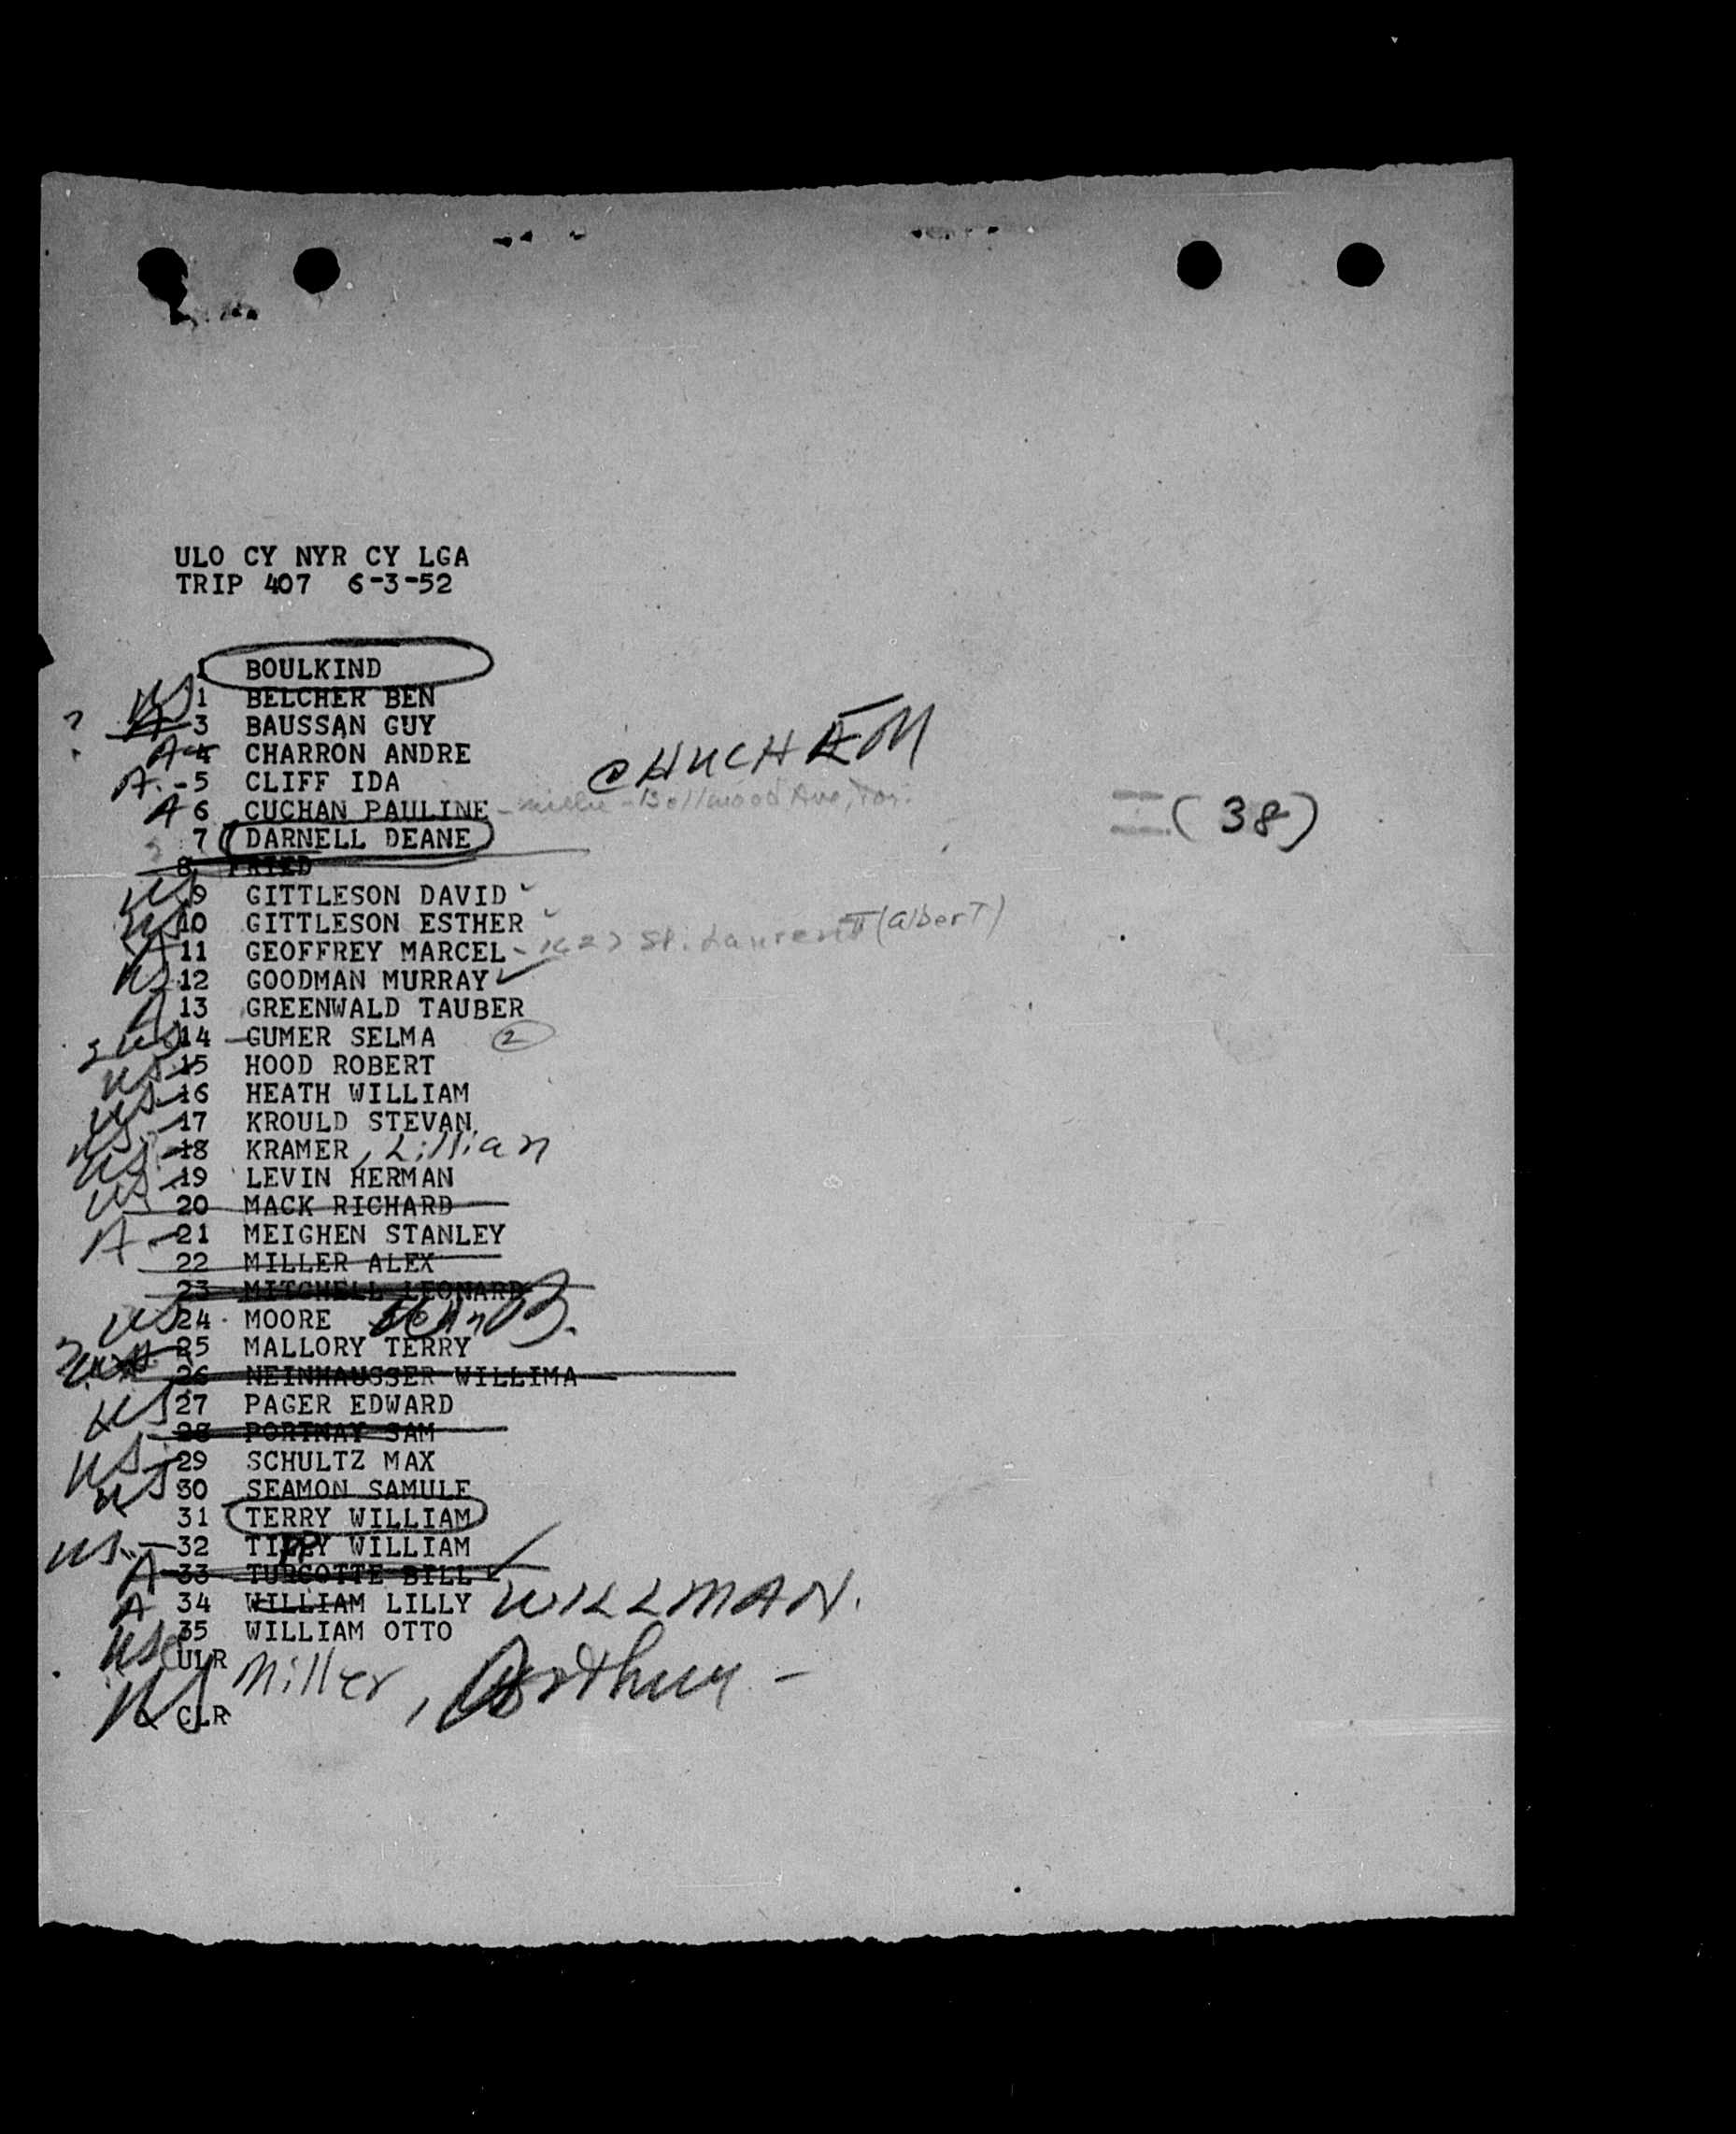 ULO CY NYR CY LGA
TRIP 407 6-3-52
1 BOULKIND
US 1 BELCHER BEN
? A 3 BAUSSAN GUY
A 4 CHARRON ANDRE
CHUCHEM
A.-5 CLIFF IDA
A 6 CUCHAN PAULINE - Ave, Tor.
(38)
7 DARNELL DEANE
8 FRIED
US 9 GITTLESON DAVID
US 10 GITTLESON ESTHER
A 11 GEOFFREY MARCEL - St. Laurent (Albert)
US 12 GOODMAN MURRAY ✓
A 13 GREENWALD TAUBER
2 US 14 GUMER SELMA 2
US 15 HOOD ROBERT
US-16 HEATH WILLIAM
US-17 KROULD STEVAN
US-18 KRAMER, Lillian
US-19 LEVIN HERMAN
20 MACK RICHARD
A-21 MEIGHEN STANLEY
22 MILLER ALEX
23 MITCHELL LEONARD
US 24 MOORE B.
25 MALLORY TERRY
26 NEINHAUSSER WILLIMA
US 27 PAGER EDWARD
28 PORTNAY SAM
US-29 SCHULTZ MAX
US 30 SEAMON SAMULE
31 TERRY WILLIAM
US.-32 TIPPY WILLIAM
A-33 TURCOTTE BILL ✓
A 34 WILLIAM LILLY WILLMAN.
US 35 WILLIAM OTTO
ULR
US Miller, Arthur -
CLR